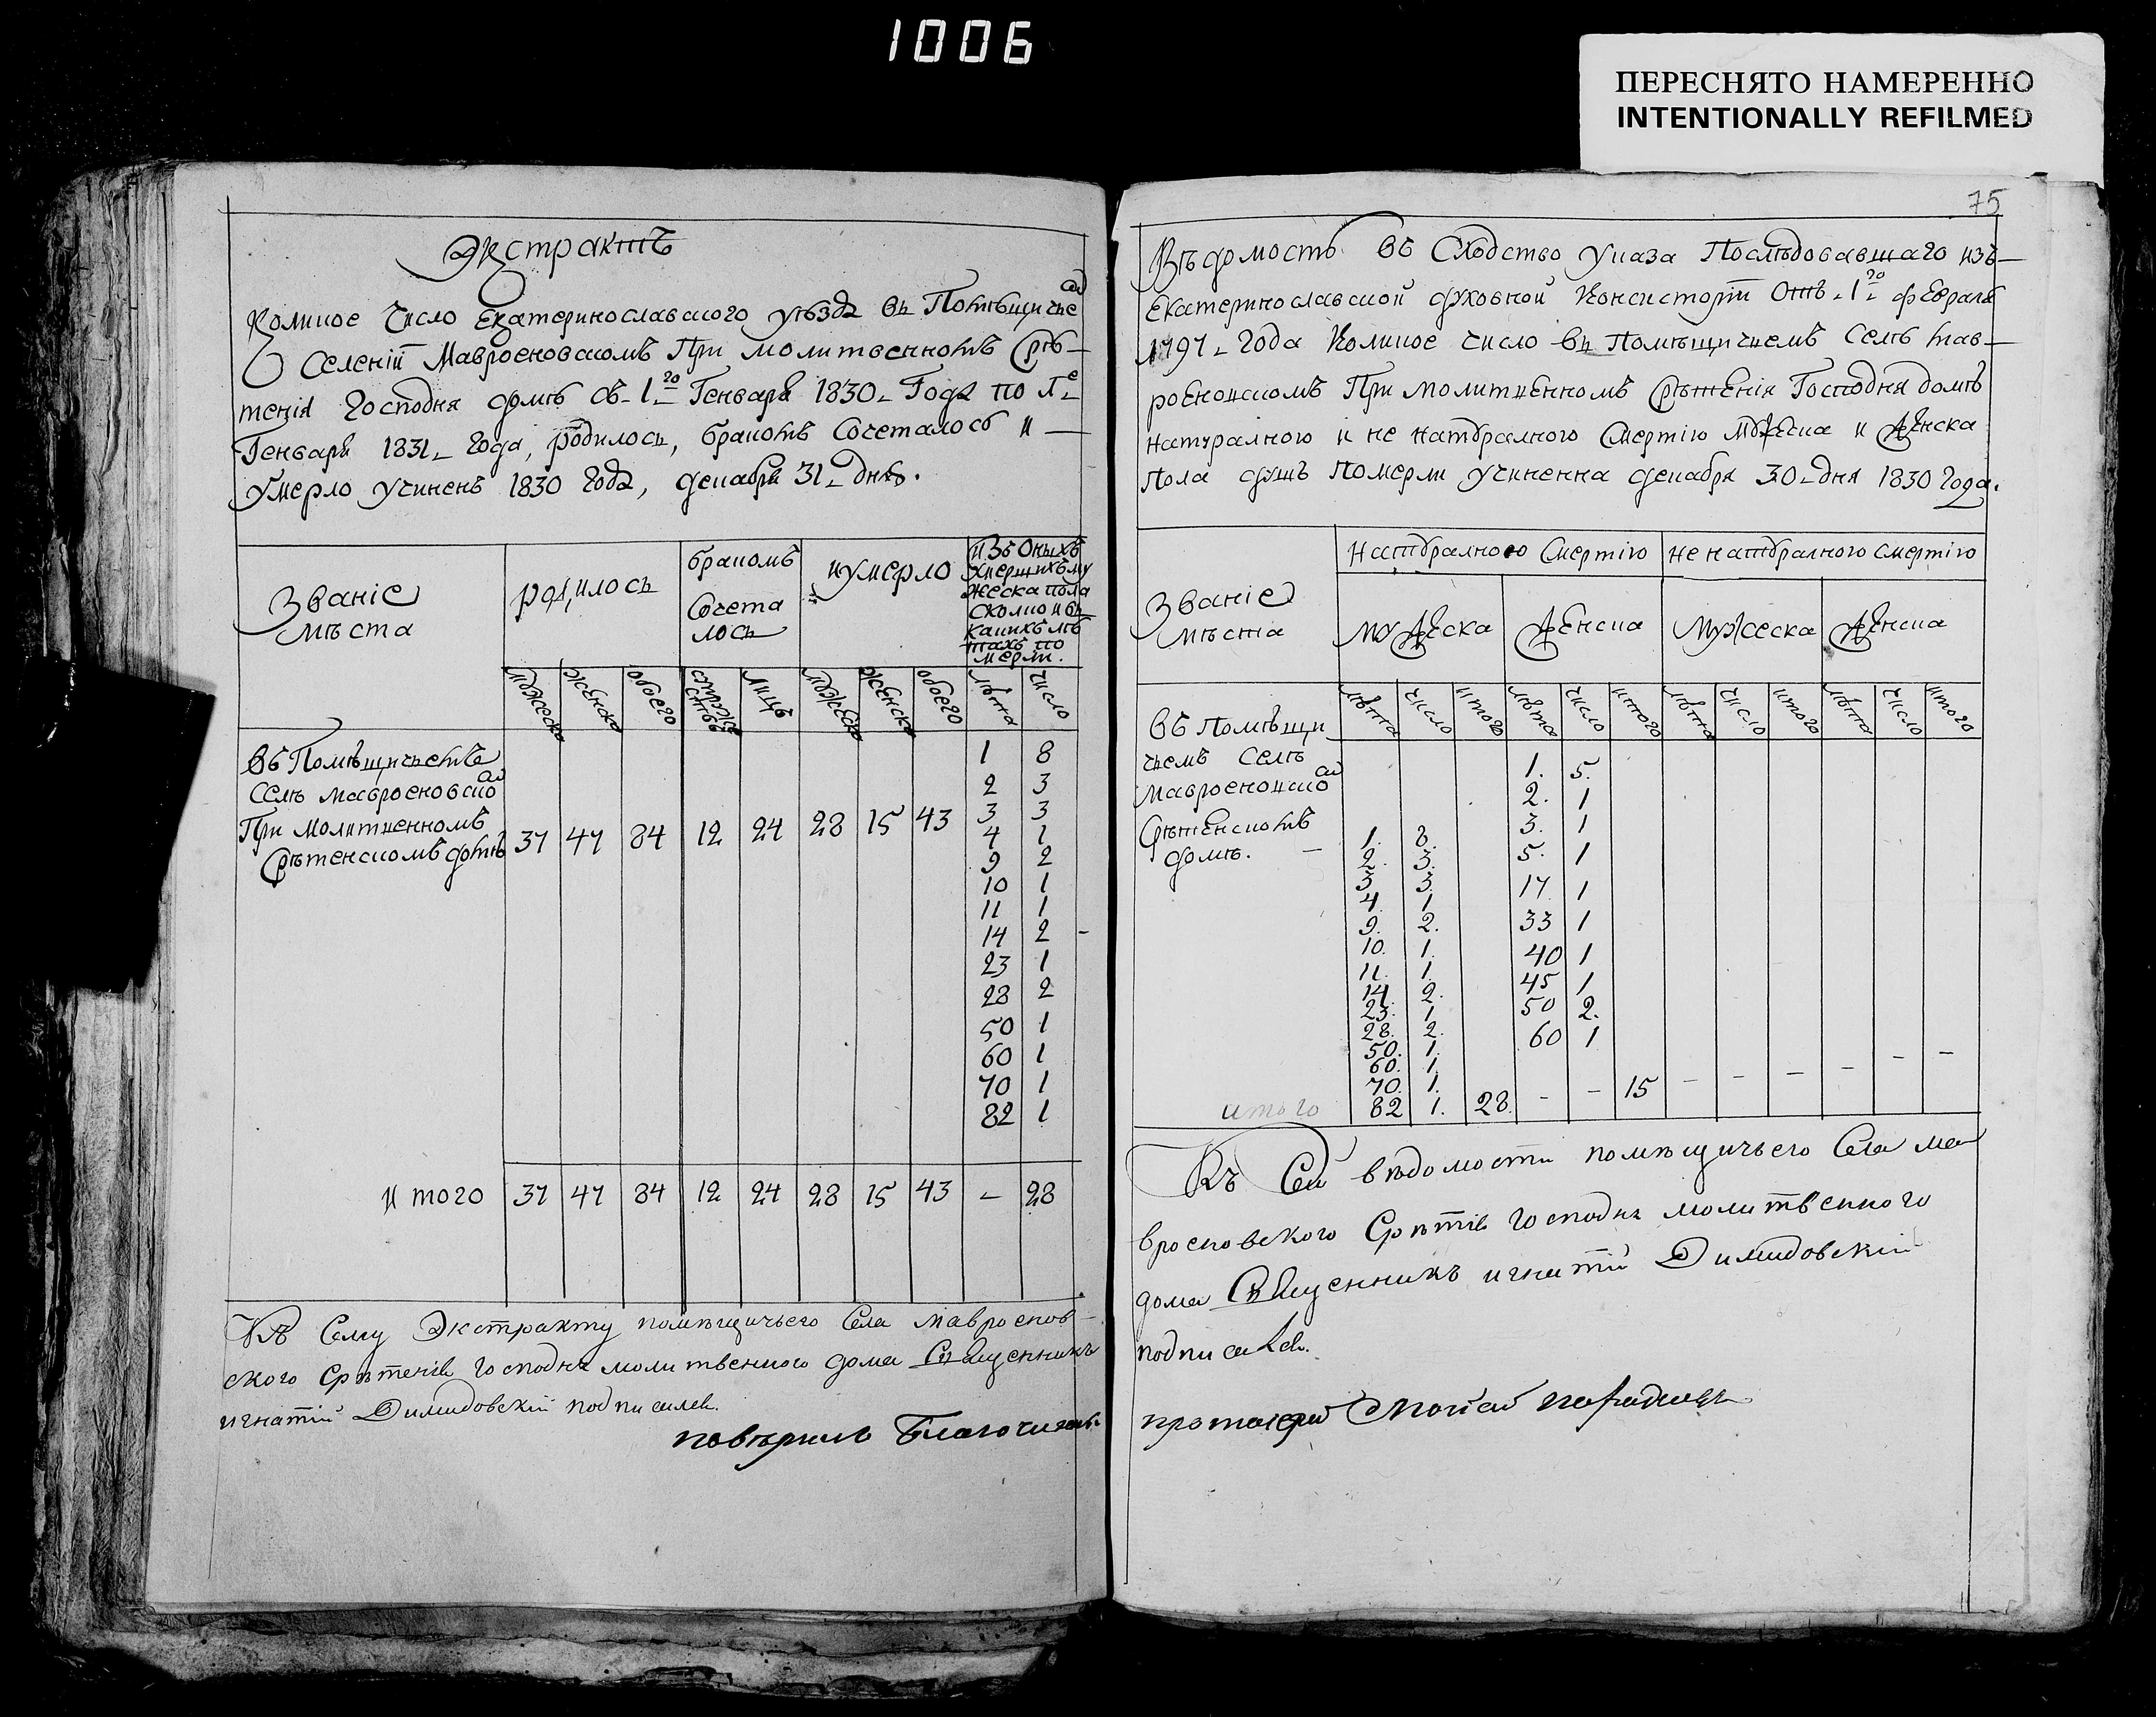 1006
ПЕРЕСНЯТО НАМЕРЕННО
INTENTIONALLY REFILMED
Экстрактъ
Коликое число Екатеринославского уѣзда въ Помѣщичье
Селеніи Мавроеновскомъ При молитвенномъ Срѣ-
тенія Господня домѣ съ 1го Генваря 1830 Года по 1е
Генваря 1831 года, родилось, бракомъ Сочеталось и
Умерло учиненъ 1830 года, декабря 31 дня.
Званіе мѣста
родилось
бракомъ Сочеталось
и умерло
изъ оныхъ умершихъ мужеска пола сколко и въ какихъ лѣтахъ померли.
мужеска женска обоего супружествъ лицъ мужеска женска обоего лѣта число
въ Помѣщичьемъ
Селѣ Мавроеновско
При Молитвенномъ
Срѣтенскомъ домѣ 37 47 84 12 24 28 15 43
1 8
2 3
3 3
4 1
9 2
10 1
11 1
14 2
23 1
28 2
50 1
60 1
70 1
82 1
Итого 37 47 84 12 24 28 15 43 – 28
Къ Сему Экстракту помѣщичьего Села мавроенов-
ского Срѣтенія Господня молитвенного дома Священникъ
игнатій Димидовскій подписался.
повѣрилъ Благочинный
75
Вѣдомость въ Сходство указа Послѣдовавшаго изъ
Екатеринославской духовной Консисторіи отъ 1го февраля
1797 года Коликое число въ Помѣщичьемъ Селѣ мав-
роеновскомъ При молитвенномъ Срѣтенія Господня домѣ
натуралною и не натуралною Смертію мужеска и женска
пола душъ Померли учиненна декабря 30 дня 1830 года.
Званіе мѣста
Натуралною Смертію не натуралною смертію
мужеска женска мужеска женска
лѣта число итого лѣта число итого лѣта число итого лѣта число итого
въ Помѣщи
чьемъ Селѣ
Мавроеновско
Срѣтенскомъ
домѣ.
1. 8.
2. 3.
3. 3.
4. 1.
9. 2.
10. 1.
11. 1.
14. 2.
23. 1.
28. 2.
50. 1.
60. 1.
70. 1.
82 1. 28.
1. 5.
2. 1
3. 1
5. 1
17. 1
33 1
40 1
45 1
50 2.
60 1
– – 15 – – – – – –
итого
Къ Сей вѣдомости помѣщичьего Села ма
вроеновского Срѣтія господня молитвенного
дома Священникъ игнатій Димидовскій
подписался.
протоіерей